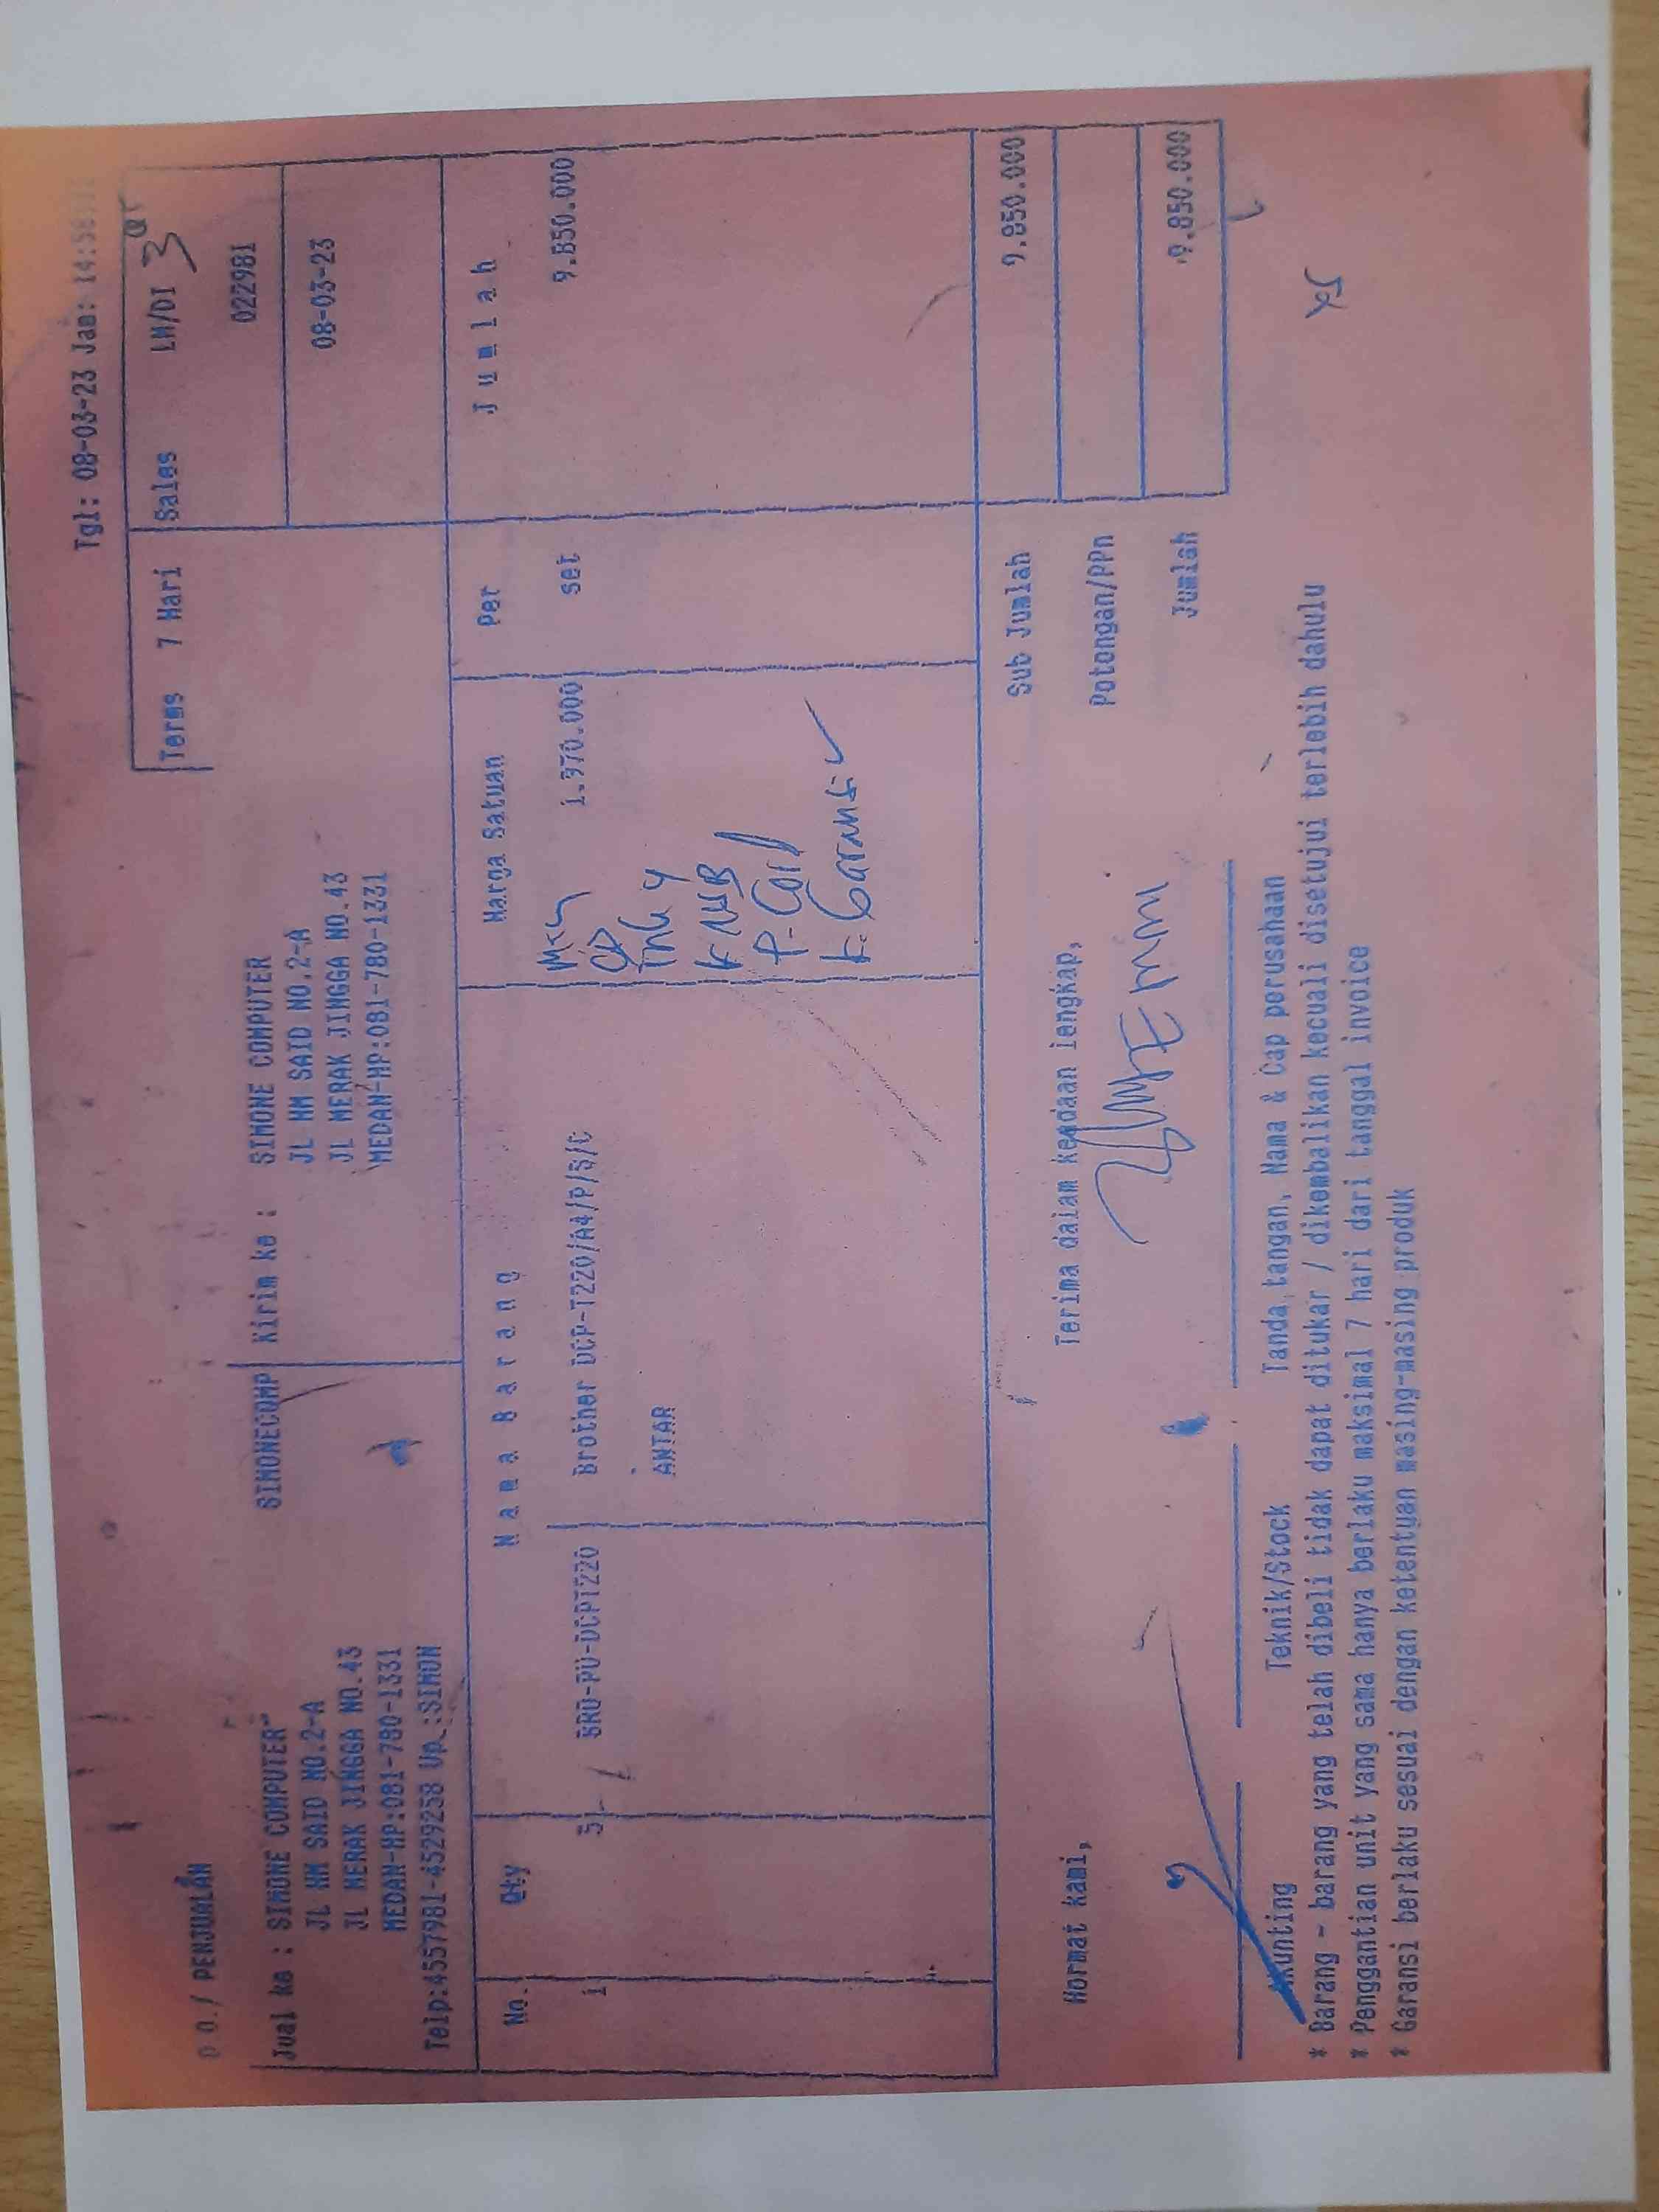 Tgl: 08-03-23 Jam: 14:58:
Terms 7 Hari Sales LM/DI 3
022981
08-03-23
/ PENJUALAN
Jual ke : SIMONE COMPUTER
JL HM SAID NO.2-A
JL MERAK JINGGA NO.43
MEDAN-HP:081-780-1331
Telp:4557981-4529258 Up.:SIMON
SIMONECOMP
Kirim ke : SIMONE COMPUTER
JL HM SAID NO.2-A
JL MERAK JINGGA NO.43
MEDAN-HP:081-780-1331
No. Qty Nama Barang Harga Satuan Per Jumlah
1 5 BRO-PU-DCPT220 Brother DCP-T220/A4/P/S/C 1.970.000 set 9.850.000
ANTAR
CD
K. USB
P. Cord
K. Garansi
Sub Jumlah 9.850.000
Potongan/PPn
Jumlah 9.850.000
Hormat kami,
Terima dalam keadaan lengkap,
Akunting Teknik/Stock Tanda tangan, Nama & Cap perusahaan
* Barang - barang yang telah dibeli tidak dapat ditukar / dikembalikan kecuali disetujui terlebih dahulu
* Penggantian unit yang sama hanya berlaku maksimal 7 hari dari tanggal invoice
* Garansi berlaku sesuai dengan ketentuan masing-masing produk